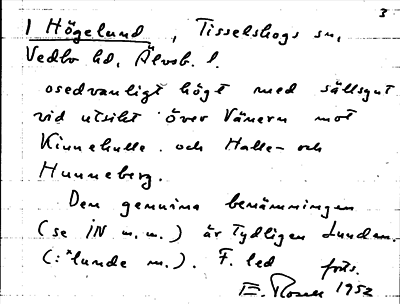 3
1 Högelund, Tisselskogs sn,
Vedbo hd, Älvsb. l.
osedvanligt högt med sällsynt
vid utsikt över Vänern mot
Kinnekulle och Halle- och
Hunneberg.
Den genuina benämningen
(se IN u.m.) är tydligen Lunden.
(: *lunde m.). F. led forts.
E. Rosell 1952